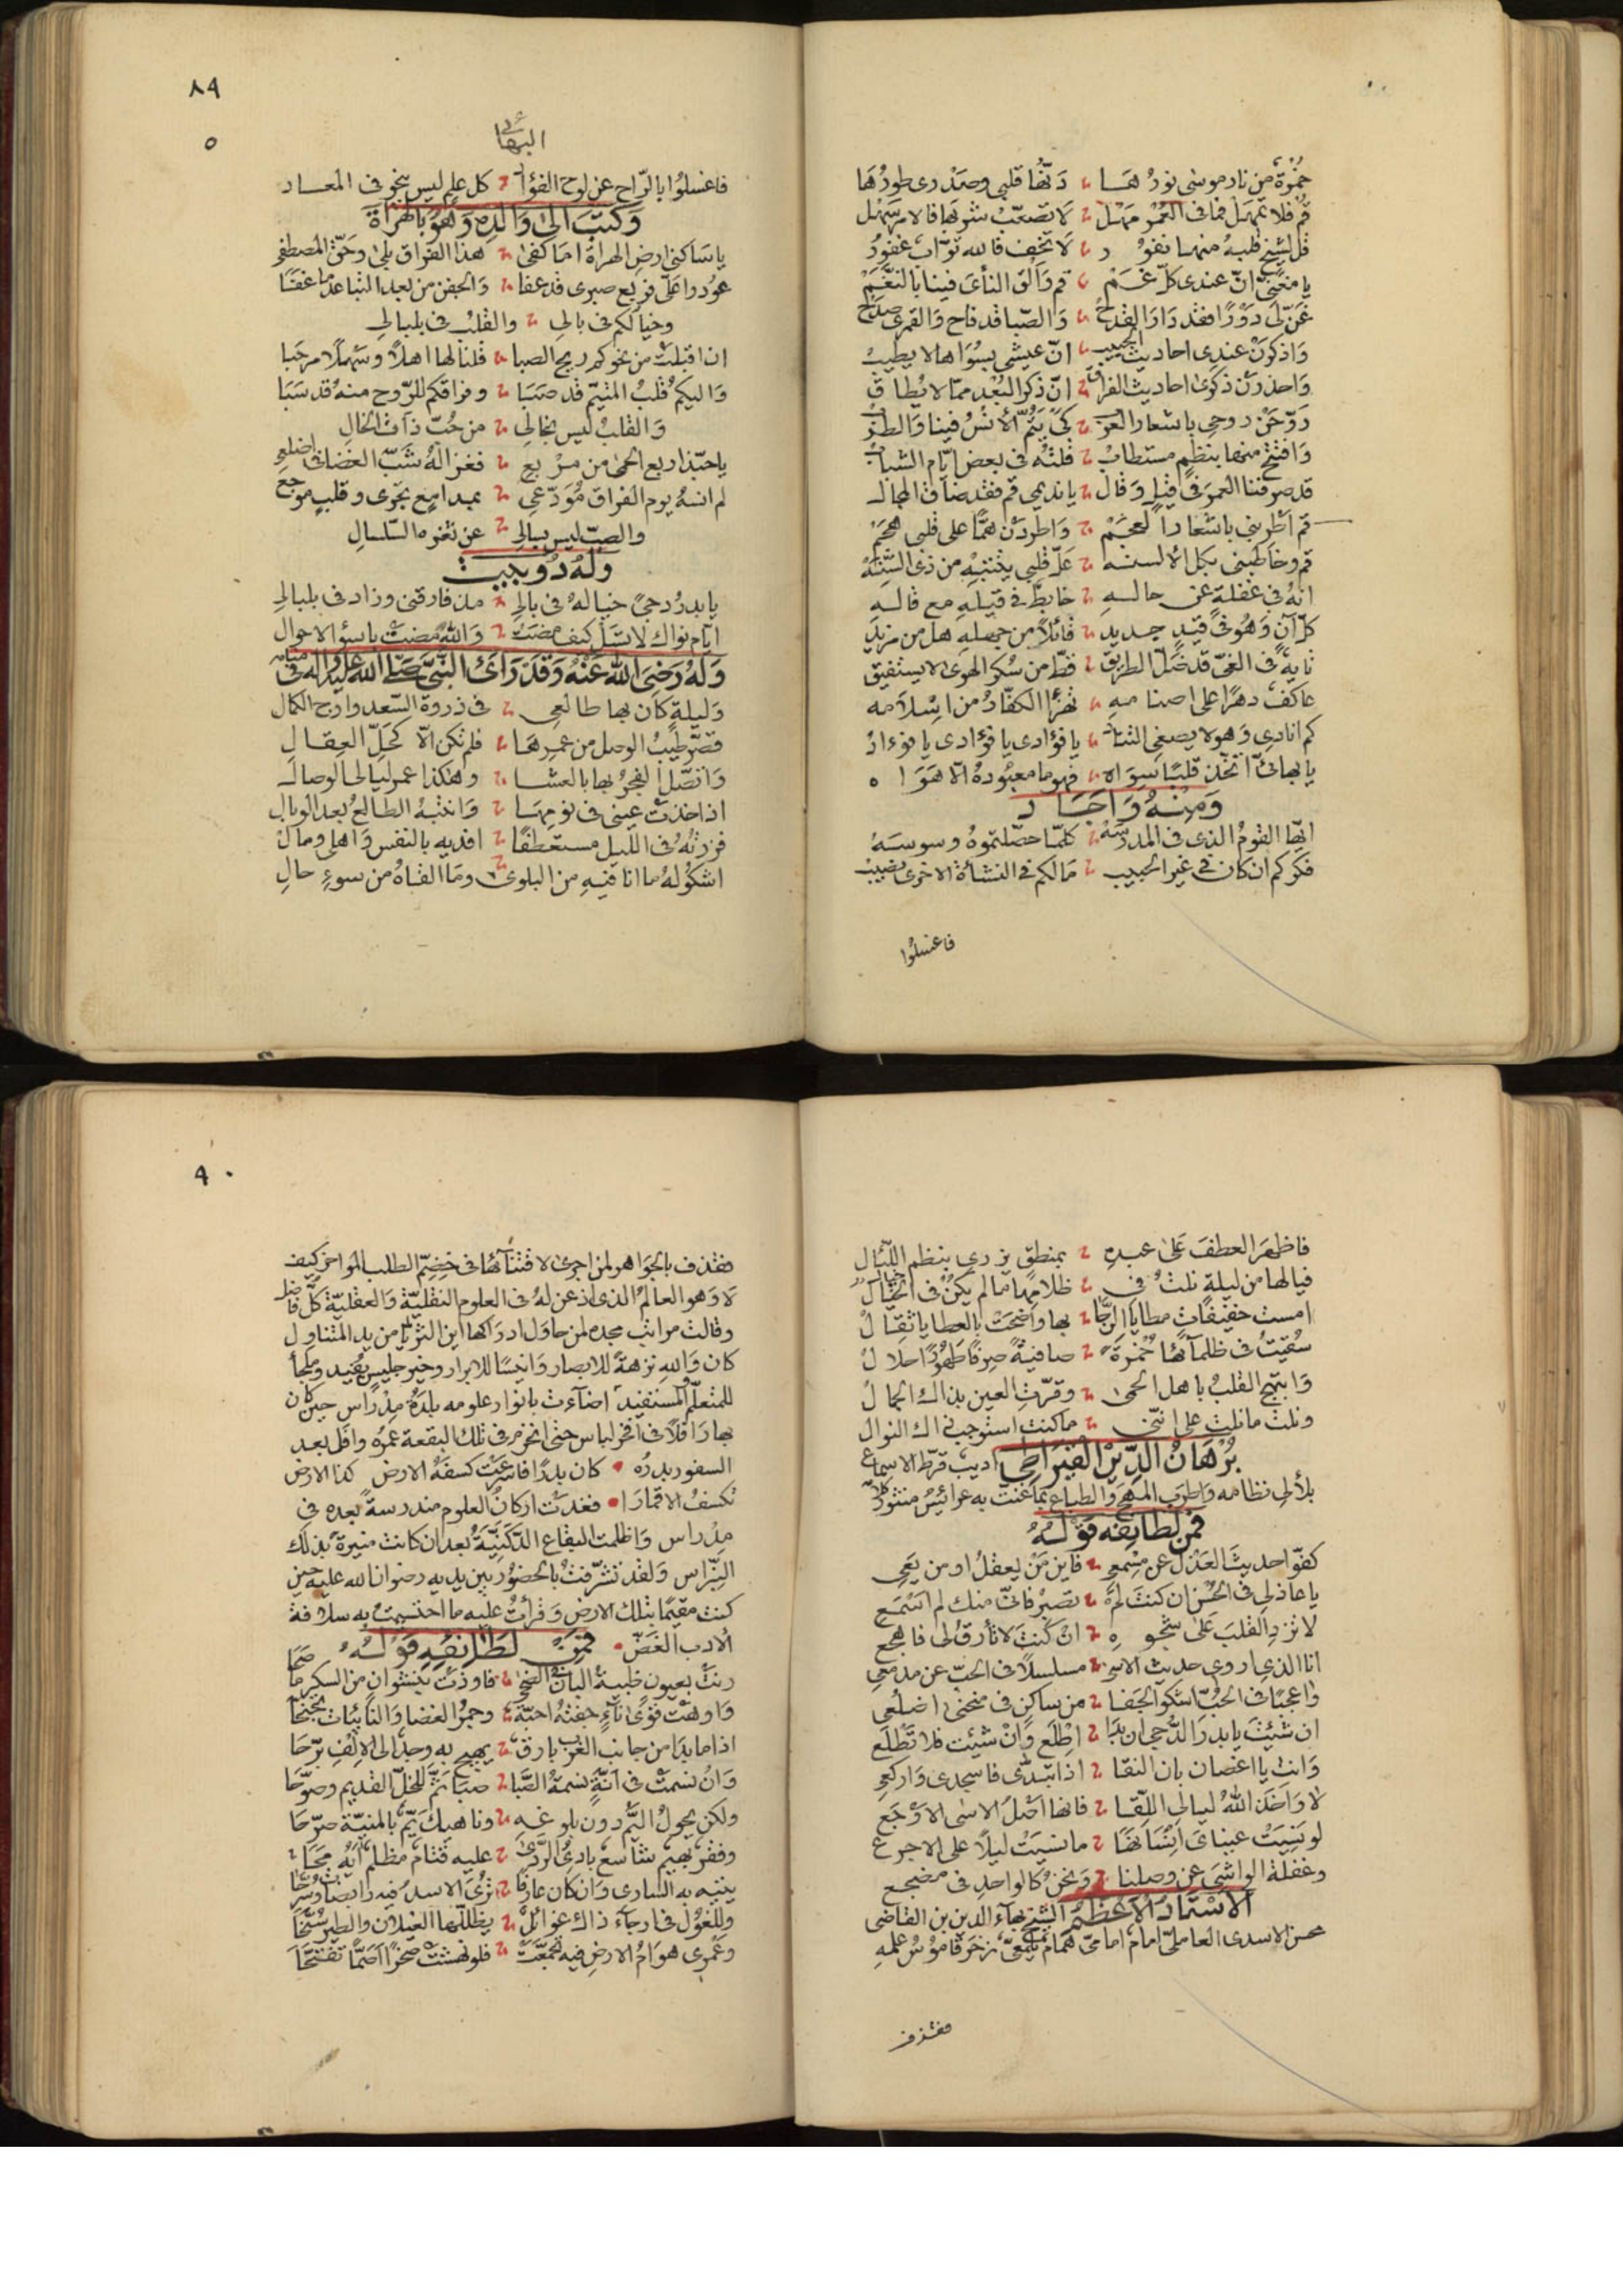 جمرة من نار موسى نورها دنها قلبي وصدري طورها
قم فلا تمهل فما في العمر مهل لا تصعب شربها فالامر سهل
قل لشيخ قلبه منها نفور لا تخف فالله تواب غفور
يا مغني ان عندي كل غم قم والق الناي فينا بالنغم
غن لي دورا فقد دار القدح والصبا قد فاح والقمري صدح
واذكرن عندي احاديث الحبيب ان عيشي بسواها لا يطيب
واحذرن ذكرى احاديث الفراق ان ذكر البعد مما لا يطاق
روحن روحي باشعار العرب كي يتم الانس فينا والطرب
وافتتح منها بنظم مستطاب قلته في بعض ايام الشباب
قد صرفنا العمر في قيل وقال يا نديمي قم فقد ضاق المجال
قم اطربني باشعار العجم واطردن هما على قلبي هجم
قم وخاطبني بكل الالسنه عل قلبي ينتبه من ذي السنه
انه في غفلة عن حاله خابط في قيله مع قاله
كل آن وهو في قيد جديد قائلا من جهله هل من مزيد
تايه في الغي قد ضل الطريق قط من سكر الهوى لا يستفيق
عاكف دهرا على اصنامه تهزأ الكفار من اسلامه
كم انادي وهو لا يصغي التناد يا فؤادي يا فؤادي يا فؤاد
يا بهائي اتخذ قلبا سواه فهو ما معبوده الا هواه
ومنه واجاد
ايها القوم الذي في المدرسه كلما حصلتموه وسوسه
فكركم ان كان في غير الحبيب ما لكم في النشأة الاخرى نصيب
فاغسلوا
٨٩
٥
البهائي
فاغسلوا بالراح عن لوح الفؤاد كل علم ليس ينجو في المعاد
وكتب الى والده وهو بالهراة
يا ساكني ارض الهراة اما كفى هذا الفراق بلى وحق المصطفى
عودوا علي فربع صبري قد عفا والجفن من بعد التباعد ما غفا
وخيالكم في بالي والقلب في بلبال
ان اقبلت من نحوكم ريح الصبا قلنا لها اهلا وسهلا مرحبا
واليكم قلب المتيم قد صبا وفراقكم للروح منه قد سبا
والقلب ليس بخالي من حب ذات الخال
يا حبذا ربع الحمى من مربع فغزاله شب الغضا في اضلعي
لم انسه يوم الفراق مودعي بمدامع تجري وقلب موجع
والصب ليس بسالي عن ثغره السلسال
وله دوبيت
يا بدر دجى خياله في بالي مذ فارقني وزاد في بلبالي
ايام نواك لا تسل كيف مضت والله مضت باسوء الاحوال
وله رضي الله عنه وقد رأى النبي صلى الله عليه واله في منامه
وليلة كان بها طالعي في ذروة السعد واوج الكمال
قصر طيب الوصل من عمرها فلم تكن الا كحل العقال
واتصل الفجر بها بالعشا وهكذا عمر ليالي الوصال
اذ اخذت عيني في نومها وانتبه الطالع بعد الوبال
فزرته في الليل مستعطفا افديه بالنفس واهلي ومال
اشكو له ما انا فيه من البلوى وما القاه من سوء حال
فاظهر العطف على عبده بمنطق يزري بنظم اللئال
فيالها من ليلة نلت في ظلامها ما لم يكن في الخيال
امست خفيفات مطايا الرجا بها واضحت بالعطايا ثقال
سقيت في ظلمائها خمرة صافية صرفا طهورا حلال
وابتهج القلب باهل الحمى وقرت العين بذاك الجمال
ونلت ما نلت على انني ما كنت استوجب ذاك النوال
برهان الدين القيراطي اديب قرط الاسماع
بلألي نظامه واطرب المهج والطباع بما غنت به عرائس منثور كلامه
فمن لطايفه قوله
كفوا حديث العذل عن مسمعي فاين من يعقل او من يعي
يا عاذلي في الحسن ان كنت لم تصبر فاني منك لم اسمع
لا تزد القلب على شجوه ان كنت لا تأرق لي فاهجع
انا الذي اروي حديث الاسى مسلسلا في الحب عن مدمعي
واعجبا في الحب اشكو الجفا من ساكن في منحنى اضلعي
ان شئت يا بدر الدجى ان بدا اطلع وان شئت فلا تطلع
وانت يا اغصان بان النقا اذا تبدى فاسجدي واركعي
لا واخذ الله ليالي اللقا فانها اصل الاسى الاوجع
لو نسيت عيناي انسانها ما نسيت ليلا على الاجرع
وغفلة الواشي عن وصلنا ونحن كالواحد في مضجع
الاستاد الاعظم الشيخ بهاء الدين بن القاضي
محسن الاسدي العاملي امام امامي همام يلمعي زخر قاموس علمه
فقذف
٩٠
فقذف بالجواهر لمن اجرى لاقتنائها في خضم الطلب المواخر كيف
لا وهو العالم الذي اذعن له في العلوم النقلية والعقلية كل فاضل
وقالت مراتب مجده لمن حاول ادراكها اين الثريا من يد المتناول
كان والله نزهة للابصار وانيسا للابرار وخير جليس يفيد وملجأ
للمتعلم المستفيد اضاءت بانوار علومه بلدة مدراس حين كان
بها رافلا في افخر لباس حتى انخرم في تلك البقعة عمره وافل بعد
السفور بدره كان بدرا فاسرعت كسفه الارض كذا الارض
تكسف الاقمارا فغدت اركان العلوم مندرسة بعده في
مدراس واظلمت البقاع الدكنية بعد ان كانت منيرة بذلك
النبراس ولقد تشرفت بالحضور بين يديه رضوان الله عليه حين
كنت مقيما بتلك الارض وقرأت عليه ما احتسيت به سلافة
الادب الغض فمن لطائفه قوله
رنت بعيون ظبية البان والضحى فاودت بنشوان من السكر ما صحا
واوهت قوى ناء جفته احبة وجمر الغضا والنائبات تجنحا
اذا ما بدا من جانب الغرب بارق يهيج به وجدا الى الالف برحا
وان نسمت في آنة نسمة الصبا صبا ثم للخل القديم وصوحا
ولكن يحول اليم دون بلوغه وناهيك يم بالمنية صرحا
وفقر بهيم شاسع بادي الردى عليه قتام مظلم
يتيه به الساري وان كان عارفا ترى الاسد فيه رابضات وسرحا
وللغول في ارجاء ذاك غوائل يظللها الغيلان والطير سنحا
وعمري هوام الارض فيه تجمعت فلو نهشت صخرا اصما تفتحا